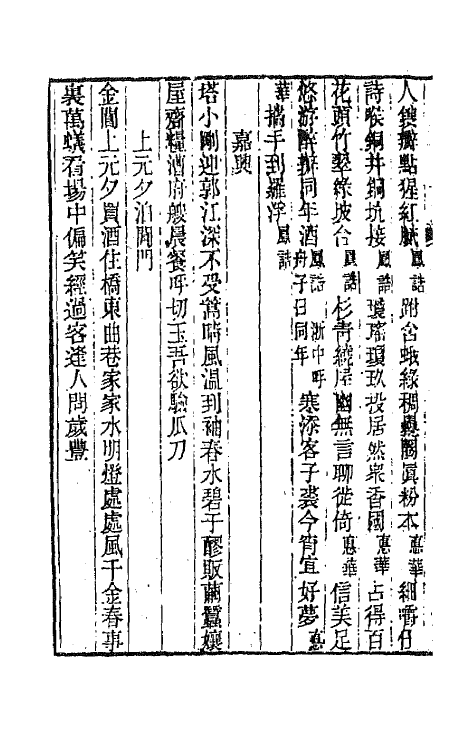 人鏤瓣點猩紅賦鳳誥跗合蛾綠稠疊關眞粉本蕙華細嚼仔
詩喉銅井銅坑接鳳誥瓊瑤瓊玖投居然衆香國蕙華占得百
花頭竹翠緣坡合鳳誥杉靑繞屋幽無言聊徙倚蕙華信美足
悠游醉拚同年酒鳳誥浙中呼舟子曰同年寒添客子裘今宵宜好夢蕙
華攜手到羅浮鳳誥
嘉興
塔小剛迎郭江深不受篙時風溫到袖春水碧于醪販繭蠶孃
屋齎糧酒府艘晨餐呼切玉吾欲驗瓜刀
上元夕泊閶門
金閶上元夕買酒住橋東曲巷家家水明燈處處風千金春事
裏萬蟻看場中偏笑經過客逢人問歲豐